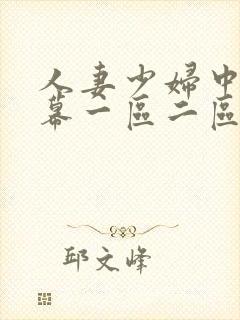 人妻少婦中
幕一區二區
邱文峰